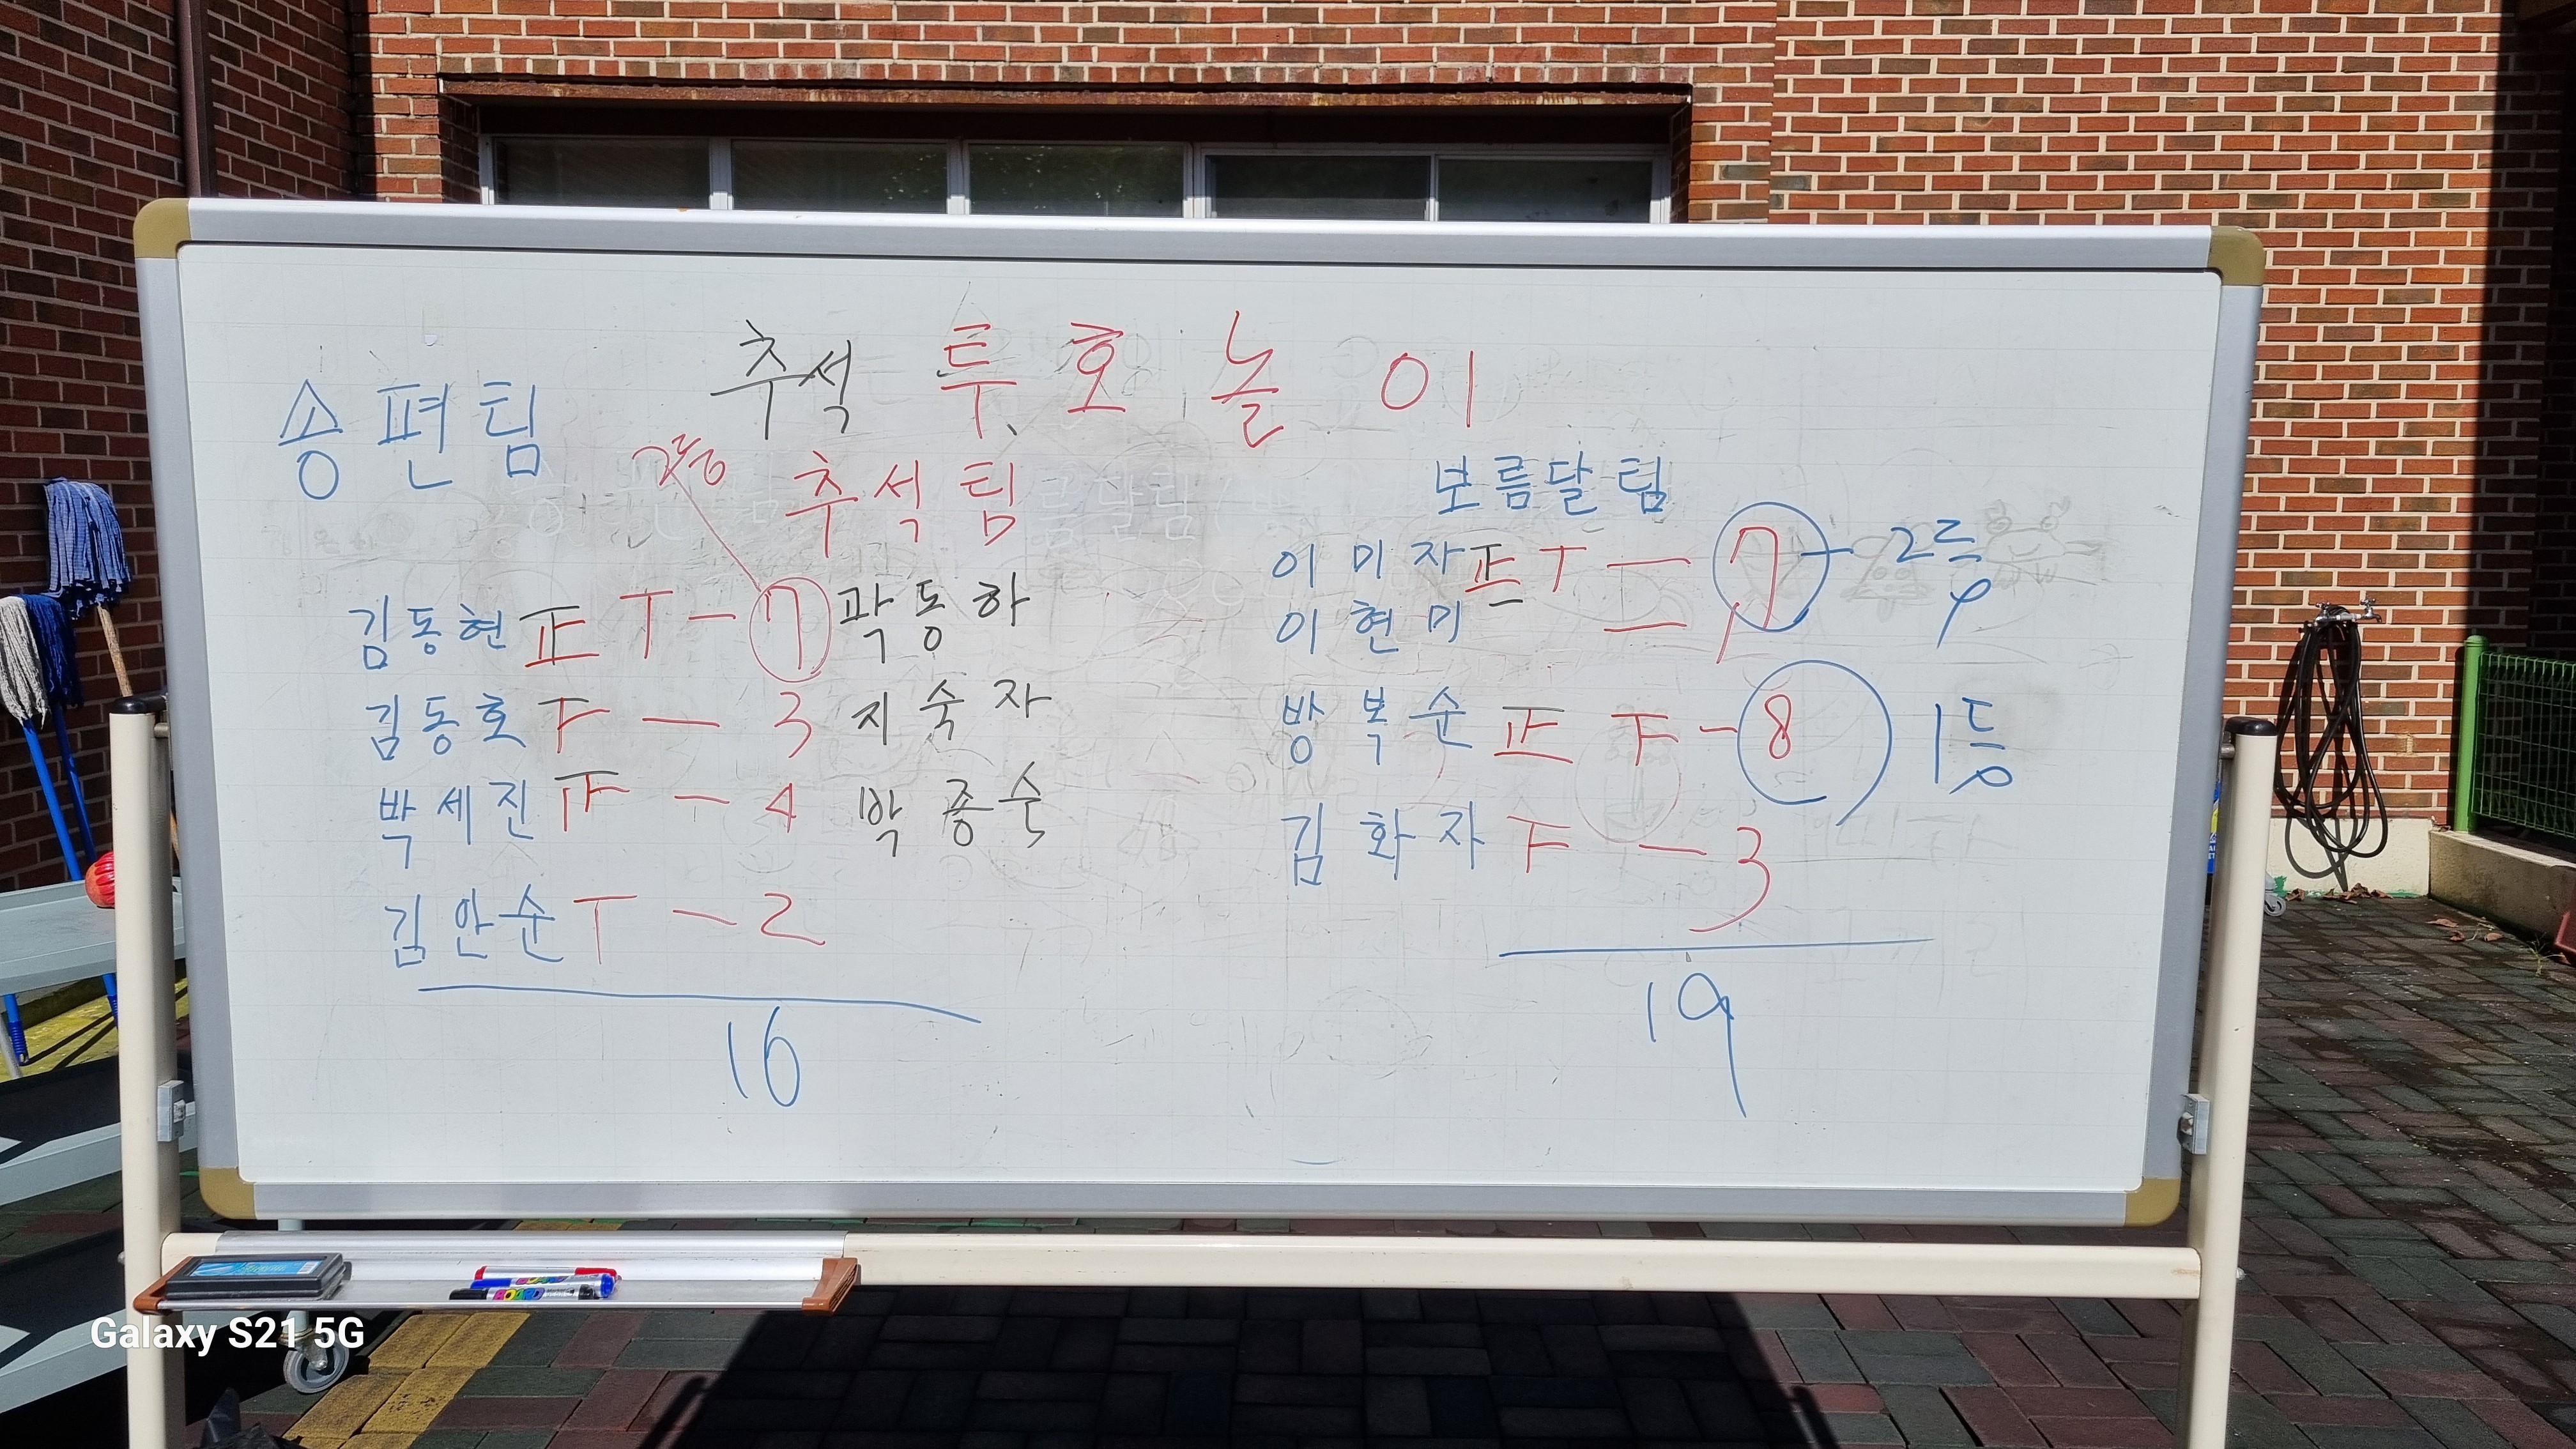 추석 투호 놀이
송편팀
2등
추석팀
보름달팀
김동현 正 T - 7 곽동하
김동호 F - 3 지숙자
박세진 正 - 4 박종순
김안순 T - 2
16
이미자 正 T = 7 - 2등
이현미
방복순 正 F - 8 1등
김화자 F - 3
19
Galaxy S21 5G